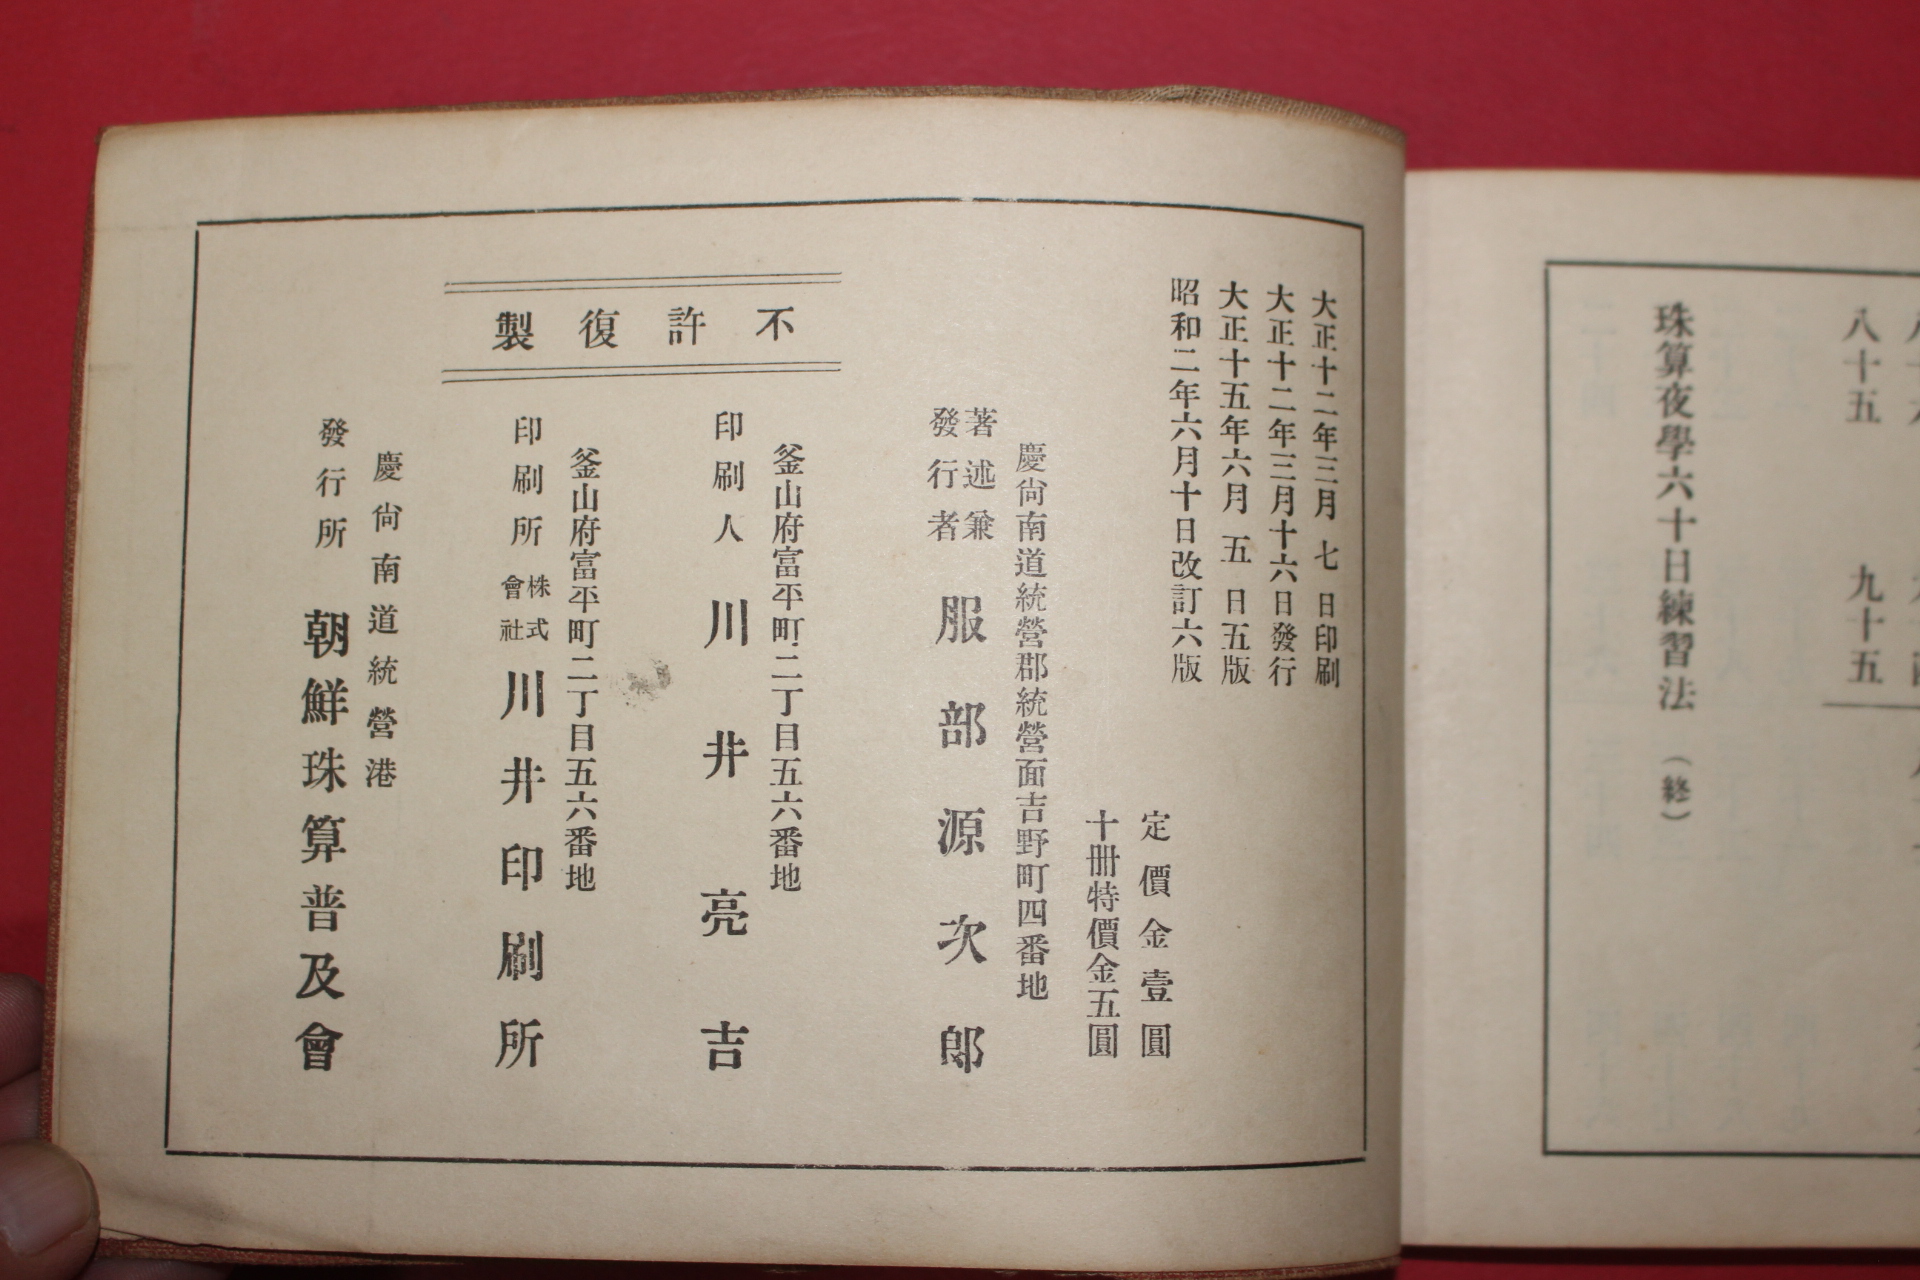 八十五　九十五
珠算夜學六十日練習法（終）
大正十二年三月七日印刷
大正十二年三月十六日發行
大正十五年六月五日五版
昭和二年六月十日改訂六版
定價金壹圓
十冊特價金五圓
慶尙南道統營郡統營面吉野町四番地
著述兼
發行者
服部源次郎
不許復製
釜山府富平町二丁目五六番地
印刷人　川井亮吉
釜山府富平町二丁目五六番地
印刷所　株式會社　川井印刷所
慶尙南道統營港
發行所　朝鮮珠算普及會